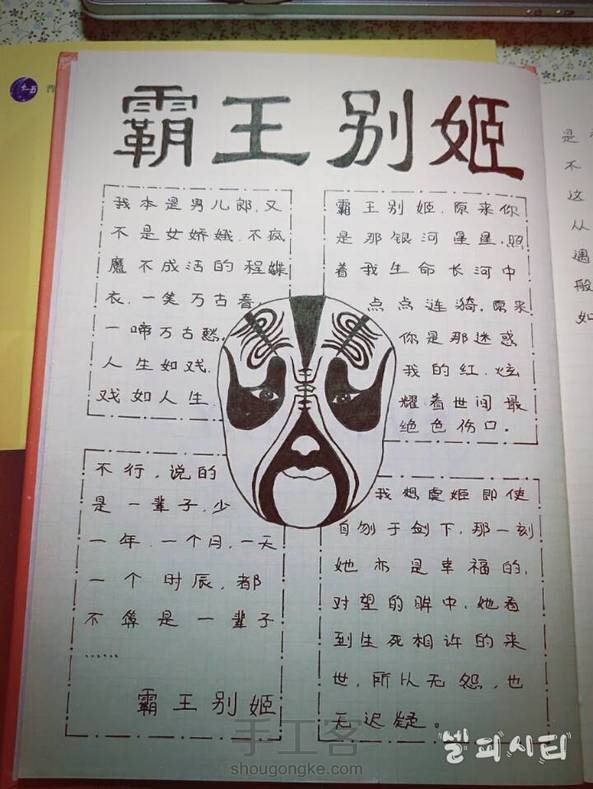 霸王别姬
我本是男儿郎，又
不是女娇娥，不疯
魔不成活的程蝶
衣，一笑万古春，
一啼万古愁，
人生如戏，
戏如人生
霸王别姬，原来你
是那银河星星，照
着我生命长河中
点点涟漪，原来
你是那迷惑
我的红，炫
耀着世间最
绝色伤口。
不行，说的
是一辈子，少
一年，一个月，一天
一个时辰，都
不算是一辈子
……
霸王别姬
我想虞姬即使
自刎于剑下，那一刻
她亦是幸福的，
对望的眸中，她看
到生死相许的来
世，所以无怨，也
无迟疑。
是
不
这
从
遇
般
如
手工客
shougongke.com
셀피시티